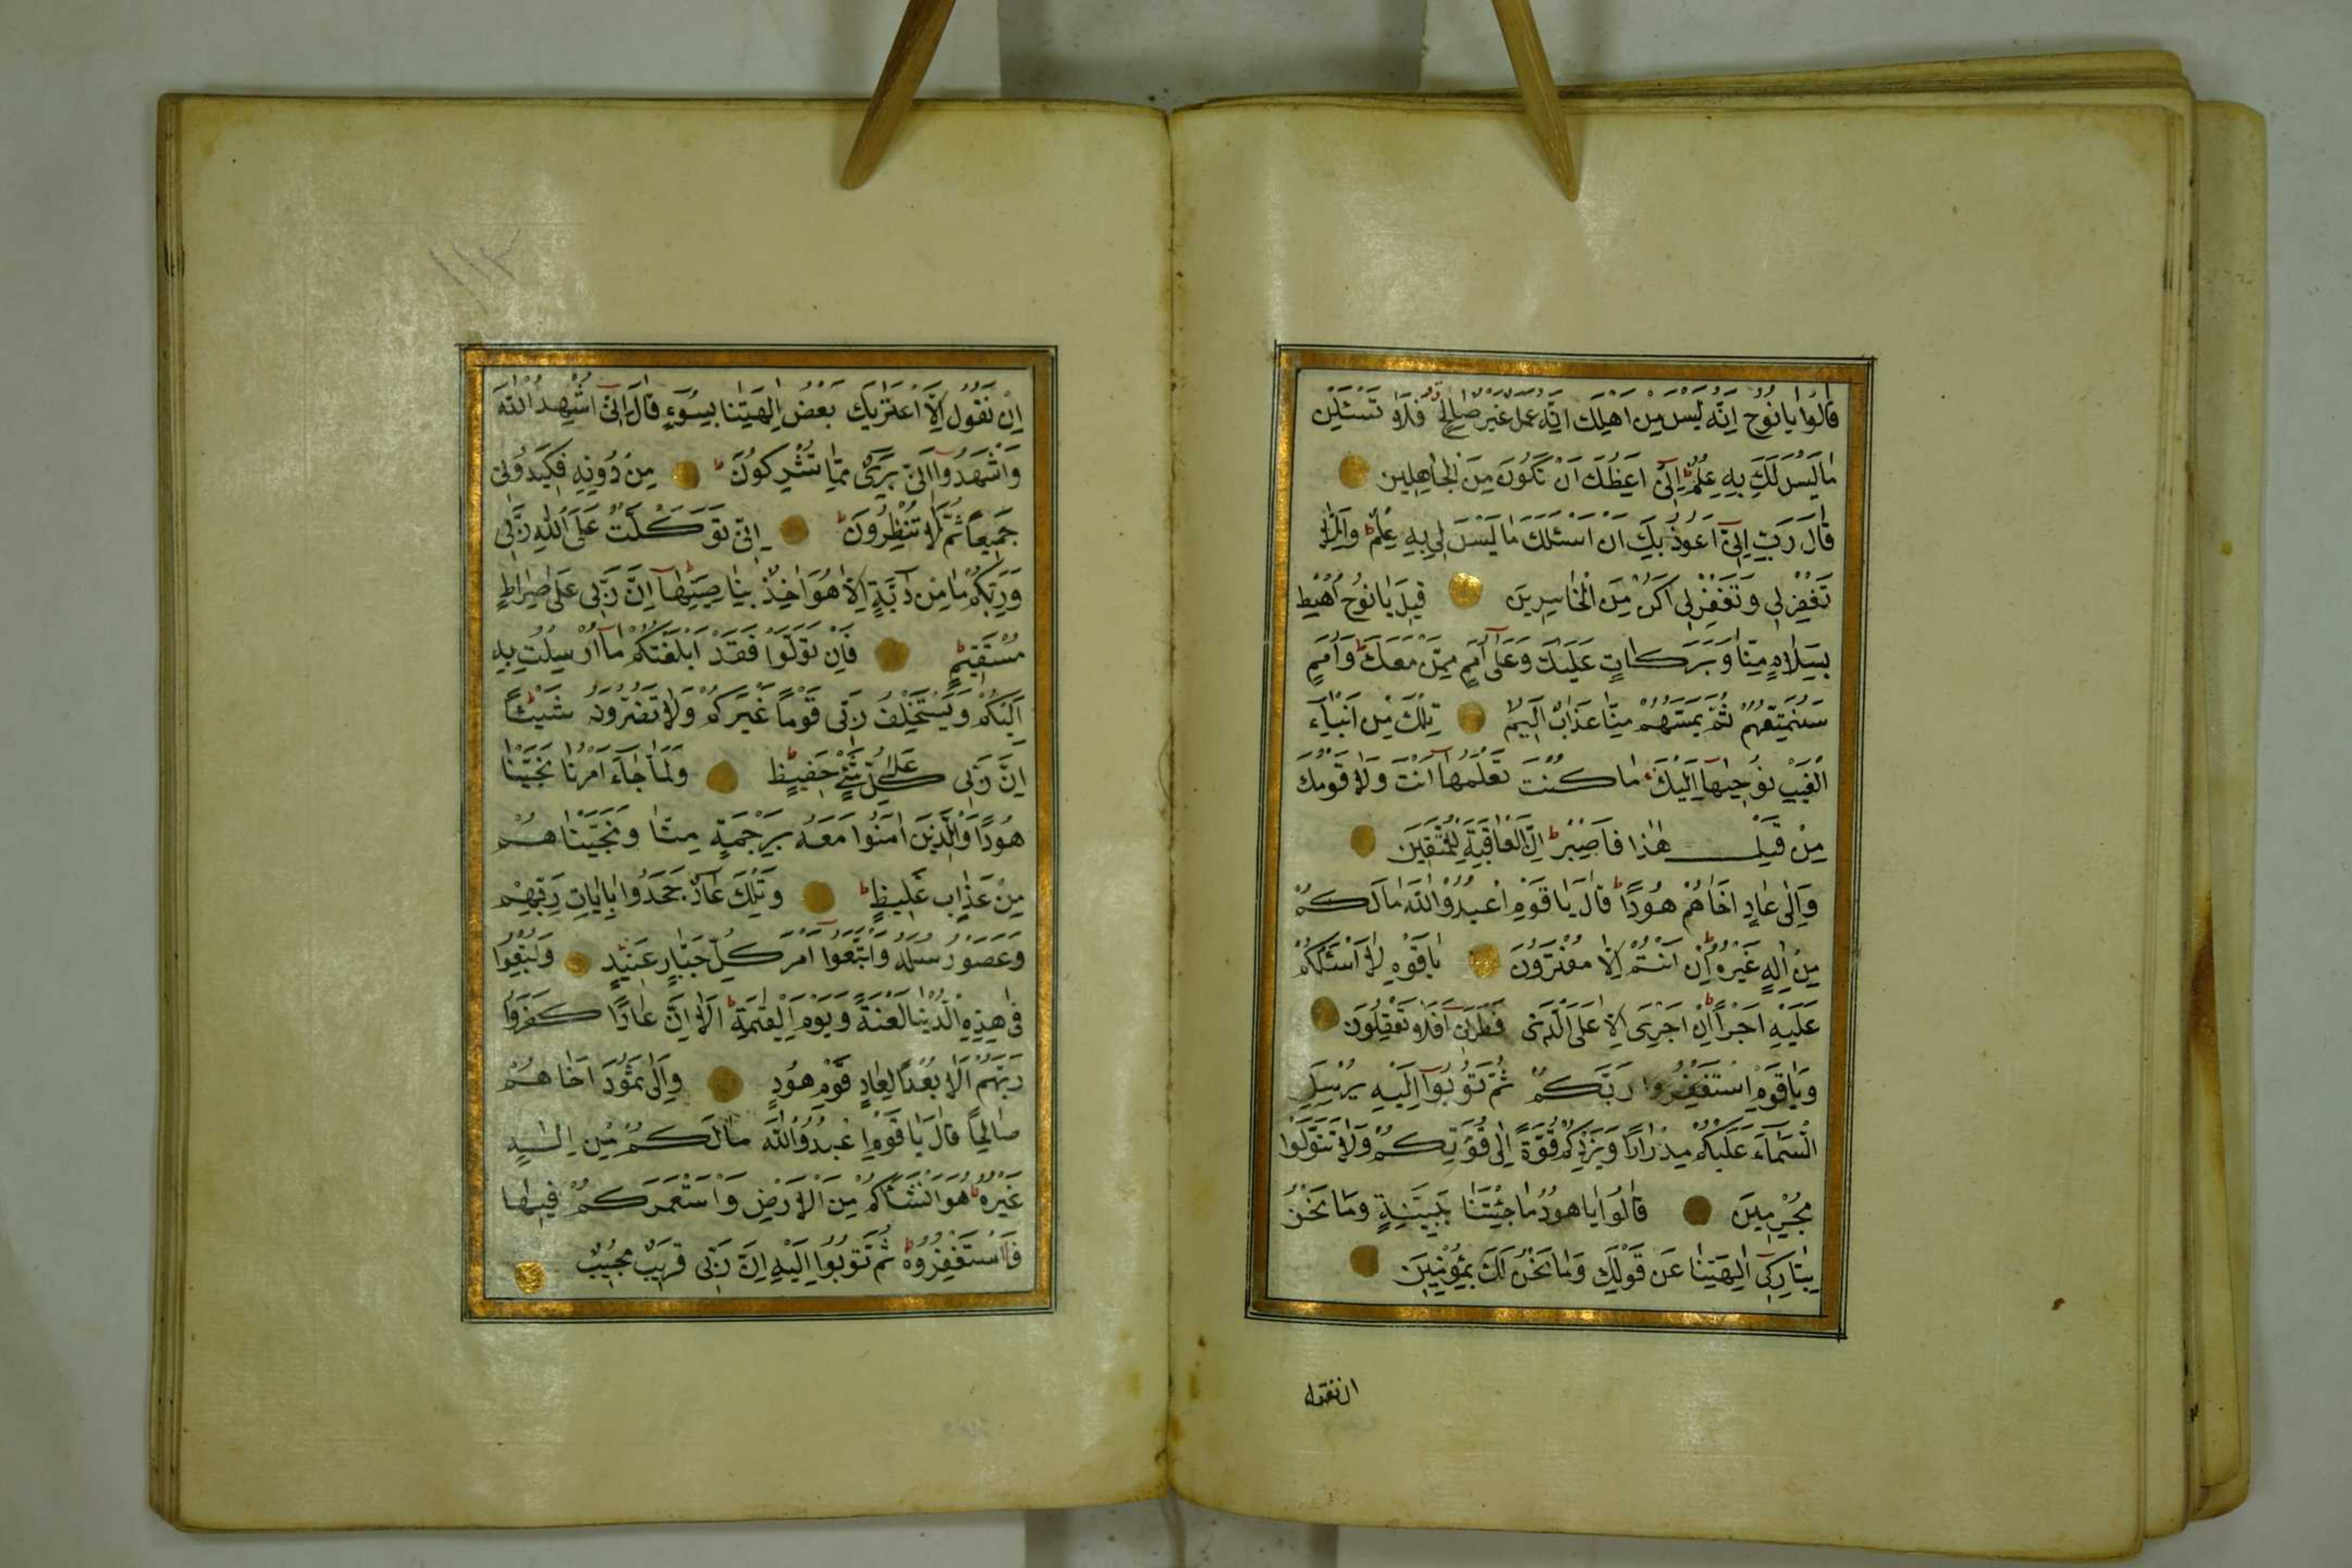 قَالُوا يَا نُوحُ اِنَّهُ لَيْسَ مِنْ اَهْلِكَ اِنَّهُ عَمَلٌ غَيْرُ صَالِحٍ فَلَا تَسْـَٔلْنِ
مَا لَيْسَ لَكَ بِهِ عِلْمٌ اِنّٓى اَعِظُكَ اَنْ تَكُونَ مِنَ الْجَاهِلِينَ
قَالَ رَبِّ اِنّٓى اَعُوذُ بِكَ اَنْ اَسْـَٔلَكَ مَا لَيْسَ لِى بِهِ عِلْمٌ وَاِلَّا
تَغْفِرْ لِى وَتَغْفِرْ لِى اَكُنْ مِنَ الْخَاسِرِينَ قِيلَ يَا نُوحُ اهْبِطْ
بِسَلَامٍ مِنَّا وَبَرَكَاتٍ عَلَيْكَ وَعَلٰٓى اُمَمٍ مِمَّنْ مَعَكَ وَاُمَمٌ
سَنُمَتِّعُهُمْ ثُمَّ يَمَسُّهُمْ مِنَّا عَذَابٌ اَلِيمٌ تِلْكَ مِنْ اَنْبَآءِ
الْغَيْبِ نُوحِيهَآ اِلَيْكَ مَا كُنْتَ تَعْلَمُهَآ اَنْتَ وَلَا قَوْمُكَ
مِنْ قَبْلِ هٰذَا فَاصْبِرْ اِنَّ الْعَاقِبَةَ لِلْمُتَّقِينَ
وَاِلٰى عَادٍ اَخَاهُمْ هُودًا قَالَ يَا قَوْمِ اعْبُدُوا اللّٰهَ مَا لَكُمْ
مِنْ اِلٰهٍ غَيْرُهُ اِنْ اَنْتُمْ اِلَّا مُفْتَرُونَ يَا قَوْمِ لَآ اَسْـَٔلُكُمْ
عَلَيْهِ اَجْرًا اِنْ اَجْرِىَ اِلَّا عَلَى الَّذِى فَطَرَنِى اَفَلَا تَعْقِلُونَ
وَيَا قَوْمِ اسْتَغْفِرُوا رَبَّكُمْ ثُمَّ تُوبُوٓا اِلَيْهِ يُرْسِلِ
السَّمَآءَ عَلَيْكُمْ مِدْرَارًا وَيَزِدْكُمْ قُوَّةً اِلٰى قُوَّتِكُمْ وَلَا تَتَوَلَّوْا
مُجْرِمِينَ قَالُوا يَا هُودُ مَا جِئْتَنَا بِبَيِّنَةٍ وَمَا نَحْنُ
بِتَارِكِى اٰلِهَتِنَا عَنْ قَوْلِكَ وَمَا نَحْنُ لَكَ بِمُؤْمِنِينَ
ان نقول
١١٣
اِنْ نَقُولُ اِلَّا اعْتَرٰيكَ بَعْضُ اٰلِهَتِنَا بِسُوٓءٍ قَالَ اِنّٓى اُشْهِدُ اللّٰهَ
وَاشْهَدُوٓا اَنّٖى بَرِىٓءٌ مِمَّا تُشْرِكُونَ مِنْ دُونِهِ فَكِيدُونِى
جَمِيعًا ثُمَّ لَا تُنْظِرُونَ اِنِّى تَوَكَّلْتُ عَلَى اللّٰهِ رَبِّى
وَرَبِّكُمْ مَا مِنْ دَآبَّةٍ اِلَّا هُوَ اٰخِذٌ بِنَاصِيَتِهَا اِنَّ رَبِّى عَلٰى صِرَاطٍ
مُسْتَقِيمٍ فَاِنْ تَوَلَّوْا فَقَدْ اَبْلَغْتُكُمْ مَآ اُرْسِلْتُ بِهِ
اِلَيْكُمْ وَيَسْتَخْلِفُ رَبِّى قَوْمًا غَيْرَكُمْ وَلَا تَضُرُّونَهُ شَيْـًٔا
اِنَّ رَبِّى عَلٰى كُلِّ شَىْءٍ حَفِيظٌ وَلَمَّا جَآءَ اَمْرُنَا نَجَّيْنَا
هُودًا وَالَّذِينَ اٰمَنُوا مَعَهُ بِرَحْمَةٍ مِنَّا وَنَجَّيْنَاهُمْ
مِنْ عَذَابٍ غَلِيظٍ وَتِلْكَ عَادٌ جَحَدُوا بِاٰيَاتِ رَبِّهِمْ
وَعَصَوْا رُسُلَهُ وَاتَّبَعُوٓا اَمْرَ كُلِّ جَبَّارٍ عَنِيدٍ وَاُتْبِعُوا
فِى هٰذِهِ الدُّنْيَا لَعْنَةً وَيَوْمَ الْقِيٰمَةِ اَلَآ اِنَّ عَادًا كَفَرُوا
رَبَّهُمْ اَلَا بُعْدًا لِعَادٍ قَوْمِ هُودٍ وَاِلٰى ثَمُودَ اَخَاهُمْ
صَالِحًا قَالَ يَا قَوْمِ اعْبُدُوا اللّٰهَ مَا لَكُمْ مِنْ اِلٰهٍ
غَيْرُهُ هُوَ اَنْشَاَكُمْ مِنَ الْاَرْضِ وَاسْتَعْمَرَكُمْ فِيهَا
فَاسْتَغْفِرُوهُ ثُمَّ تُوبُوٓا اِلَيْهِ اِنَّ رَبِّى قَرِيبٌ مُجِيبٌ